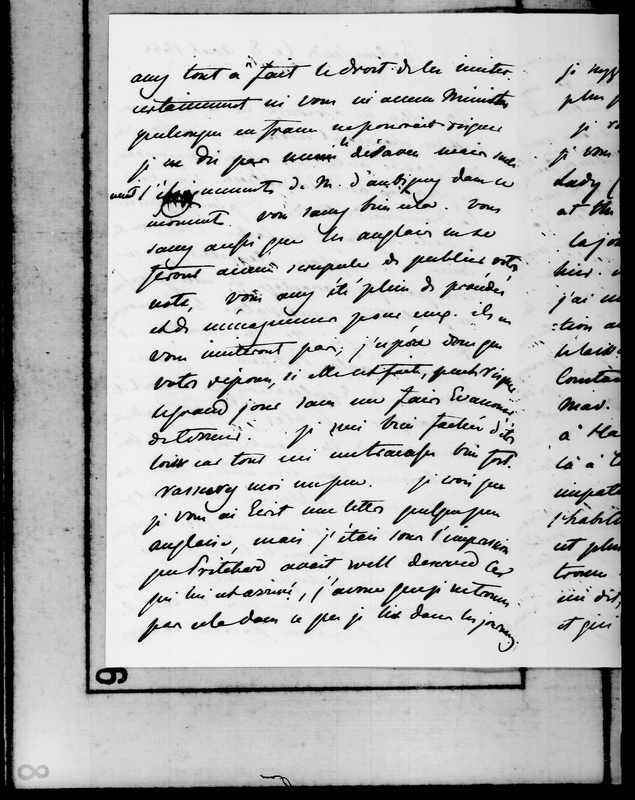 avez tout à fait le droit de les inviter.
certainement ni vous ni aucun Ministre
quelconque en france ne pourrait risquer
je ne dis pas même le désaveu mais seule
ment l' de M. d'aubigny dans ce
moment vous savez bien cela. vous
savez aussi que les anglais ne se
feront aucun scrupule de publier votre
note, vous avez été plein de procédés
et de ménagemens pour eux. ils ne
vous imiteront pas, j'espère donc que
votre réponse, si elle est faite, peut risquer
le grand jour sans me faire Evanouir
de terreur. je suis bien fachée d'être
loin car tout ceci me tracasse bien fort.
rassurez moi un peu. je crois que
je vous ai Ecrit une lettre quelque peu
anglaise, mais j'étais sous l'impression
que Pritchard avait well deserved ce
qui lui est arrivé, j'avoue que je ne trouve
pas cela dans ce que je lis dans les journ.
je
plus
je
je vous
Lady
at the
la
hier
j'ai
tion
le
Constan
Mad.
à
là à
s'habit
est plus
trouve
dit,
et qui
9
8